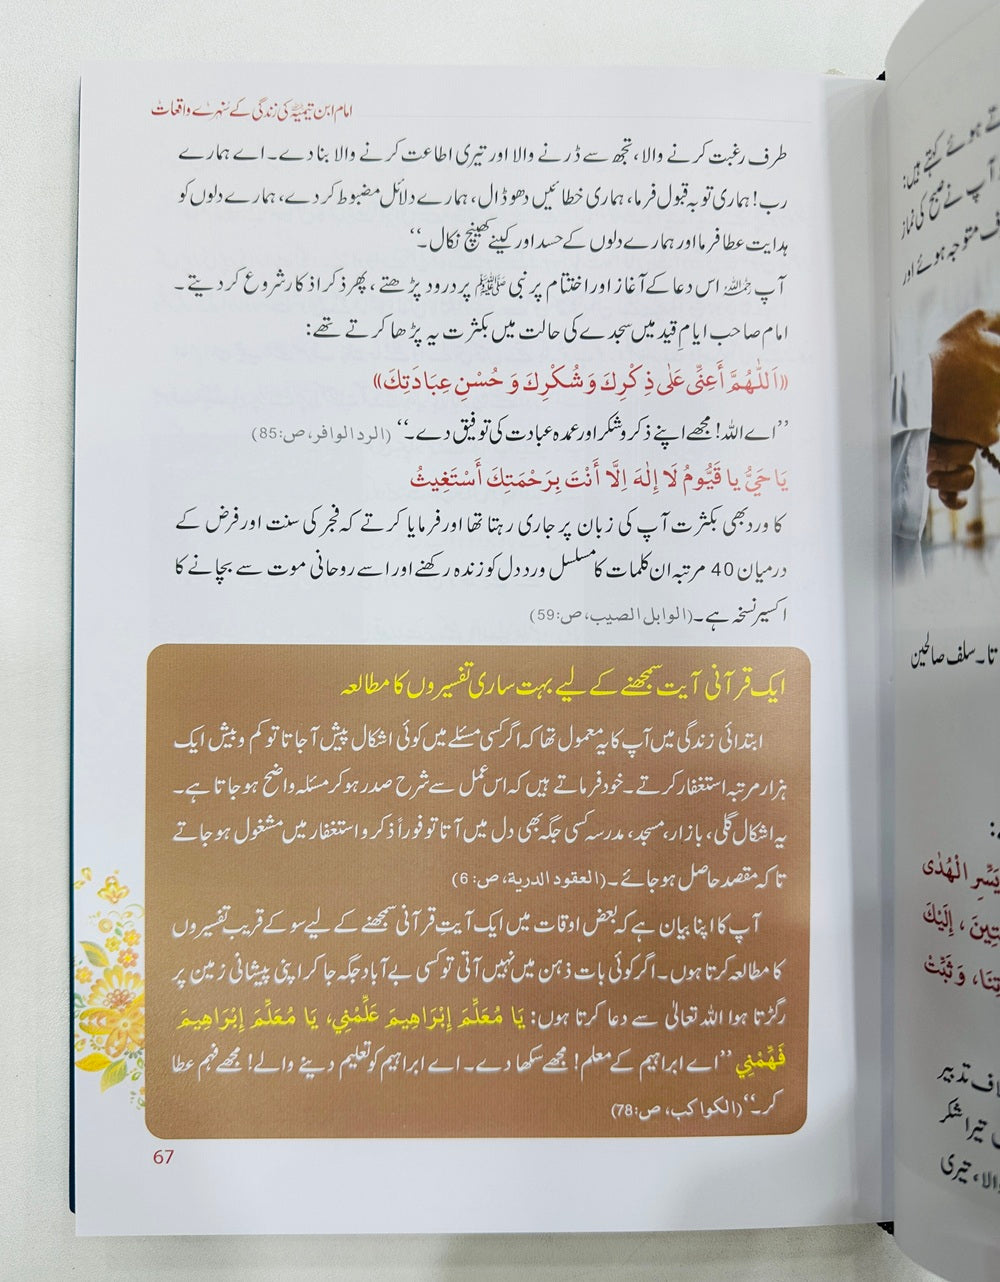 امام ابن تیمیہؒ کی زندگی کے سنہرے واقعات
طرف رغبت کرنے والا، تجھ سے ڈرنے والا اور تیری اطاعت کرنے والا بنا دے۔ اے ہمارے
رب! ہماری توبہ قبول فرما، ہماری خطائیں دھو ڈال، ہمارے دلائل مضبوط کر دے، ہمارے دلوں کو
ہدایت عطا فرما اور ہمارے دلوں کے حسد اور کینے کھینچ نکال۔‘‘
آپ رحمہ اللہ اس دعا کے آغاز اور اختتام پر نبی ﷺ پر درود پڑھتے، پھر ذکر اذکار شروع کر دیتے۔
امام صاحب ایامِ قید میں سجدے کی حالت میں بکثرت یہ پڑھا کرتے تھے:
«اَللّٰهُمَّ أَعِنِّي عَلٰى ذِكْرِكَ وَشُكْرِكَ وَ حُسْنِ عِبَادَتِكَ»
’’اے اللہ! مجھے اپنے ذکر و شکر اور عمدہ عبادت کی توفیق دے۔‘‘ (الرد الوافر، ص:85)
يَا حَيُّ يا قَيُّومُ لَا إِلٰهَ اِلَّا أَنْتَ بِرَحْمَتِكَ أَسْتَغِيثُ
کا ورد بھی بکثرت آپ کی زبان پر جاری رہتا تھا اور فرمایا کرتے کہ فجر کی سنت اور فرض کے
درمیان 40 مرتبہ ان کلمات کا مسلسل ورد دل کو زندہ رکھنے اور اسے روحانی موت سے بچانے کا
اکسیر نسخہ ہے۔ (الوابل الصیب، ص:59)
ایک قرآنی آیت سمجھنے کے لیے بہت ساری تفسیروں کا مطالعہ
ابتدائی زندگی میں آپ کا یہ معمول تھا کہ اگر کسی مسئلے میں کوئی اشکال پیش آ جاتا تو کم و بیش ایک
ہزار مرتبہ استغفار کرتے۔ خود فرماتے ہیں کہ اس عمل سے شرح صدر ہو کر مسئلہ واضح ہو جاتا ہے۔
یہ اشکال گلی، بازار، مسجد، مدرسہ کسی جگہ بھی دل میں آتا تو فوراً ذکر و استغفار میں مشغول ہو جاتے
تاکہ مقصد حاصل ہو جائے۔ (العقود الدرية، ص: 6)
آپ کا اپنا بیان ہے کہ بعض اوقات میں ایک آیتِ قرآنی سمجھنے کے لیے سو کے قریب تفسیروں
کا مطالعہ کرتا ہوں۔ اگر کوئی بات ذہن میں نہیں آتی تو کسی بے آباد جگہ جا کر اپنی پیشانی زمین پر
رگڑتا ہوا اللہ تعالیٰ سے دعا کرتا ہوں: يَا مُعَلِّمَ إِبْرَاهِيمَ عَلِّمْنِي، يَا مُعَلِّمَ إِبْرَاهِيمَ
فَهِّمْنِي ’’اے ابراہیم کے معلم! مجھے سکھا دے۔ اے ابراہیم کو تعلیم دینے والے! مجھے فہم عطا
کر۔‘‘ (الکواکب، ص:78)
67
تے ہوئے کہتے ہیں:
آپ نے صبح کی نماز
ف متوجہ ہوئے اور
تا۔ سلف صالحین
يَسِّرِ الْهُدٰى
تِينَ، إِلَيْكَ
تِنَا، وَثَبِّتْ
ف تدبیر
تیرا شکر
والا، تیری